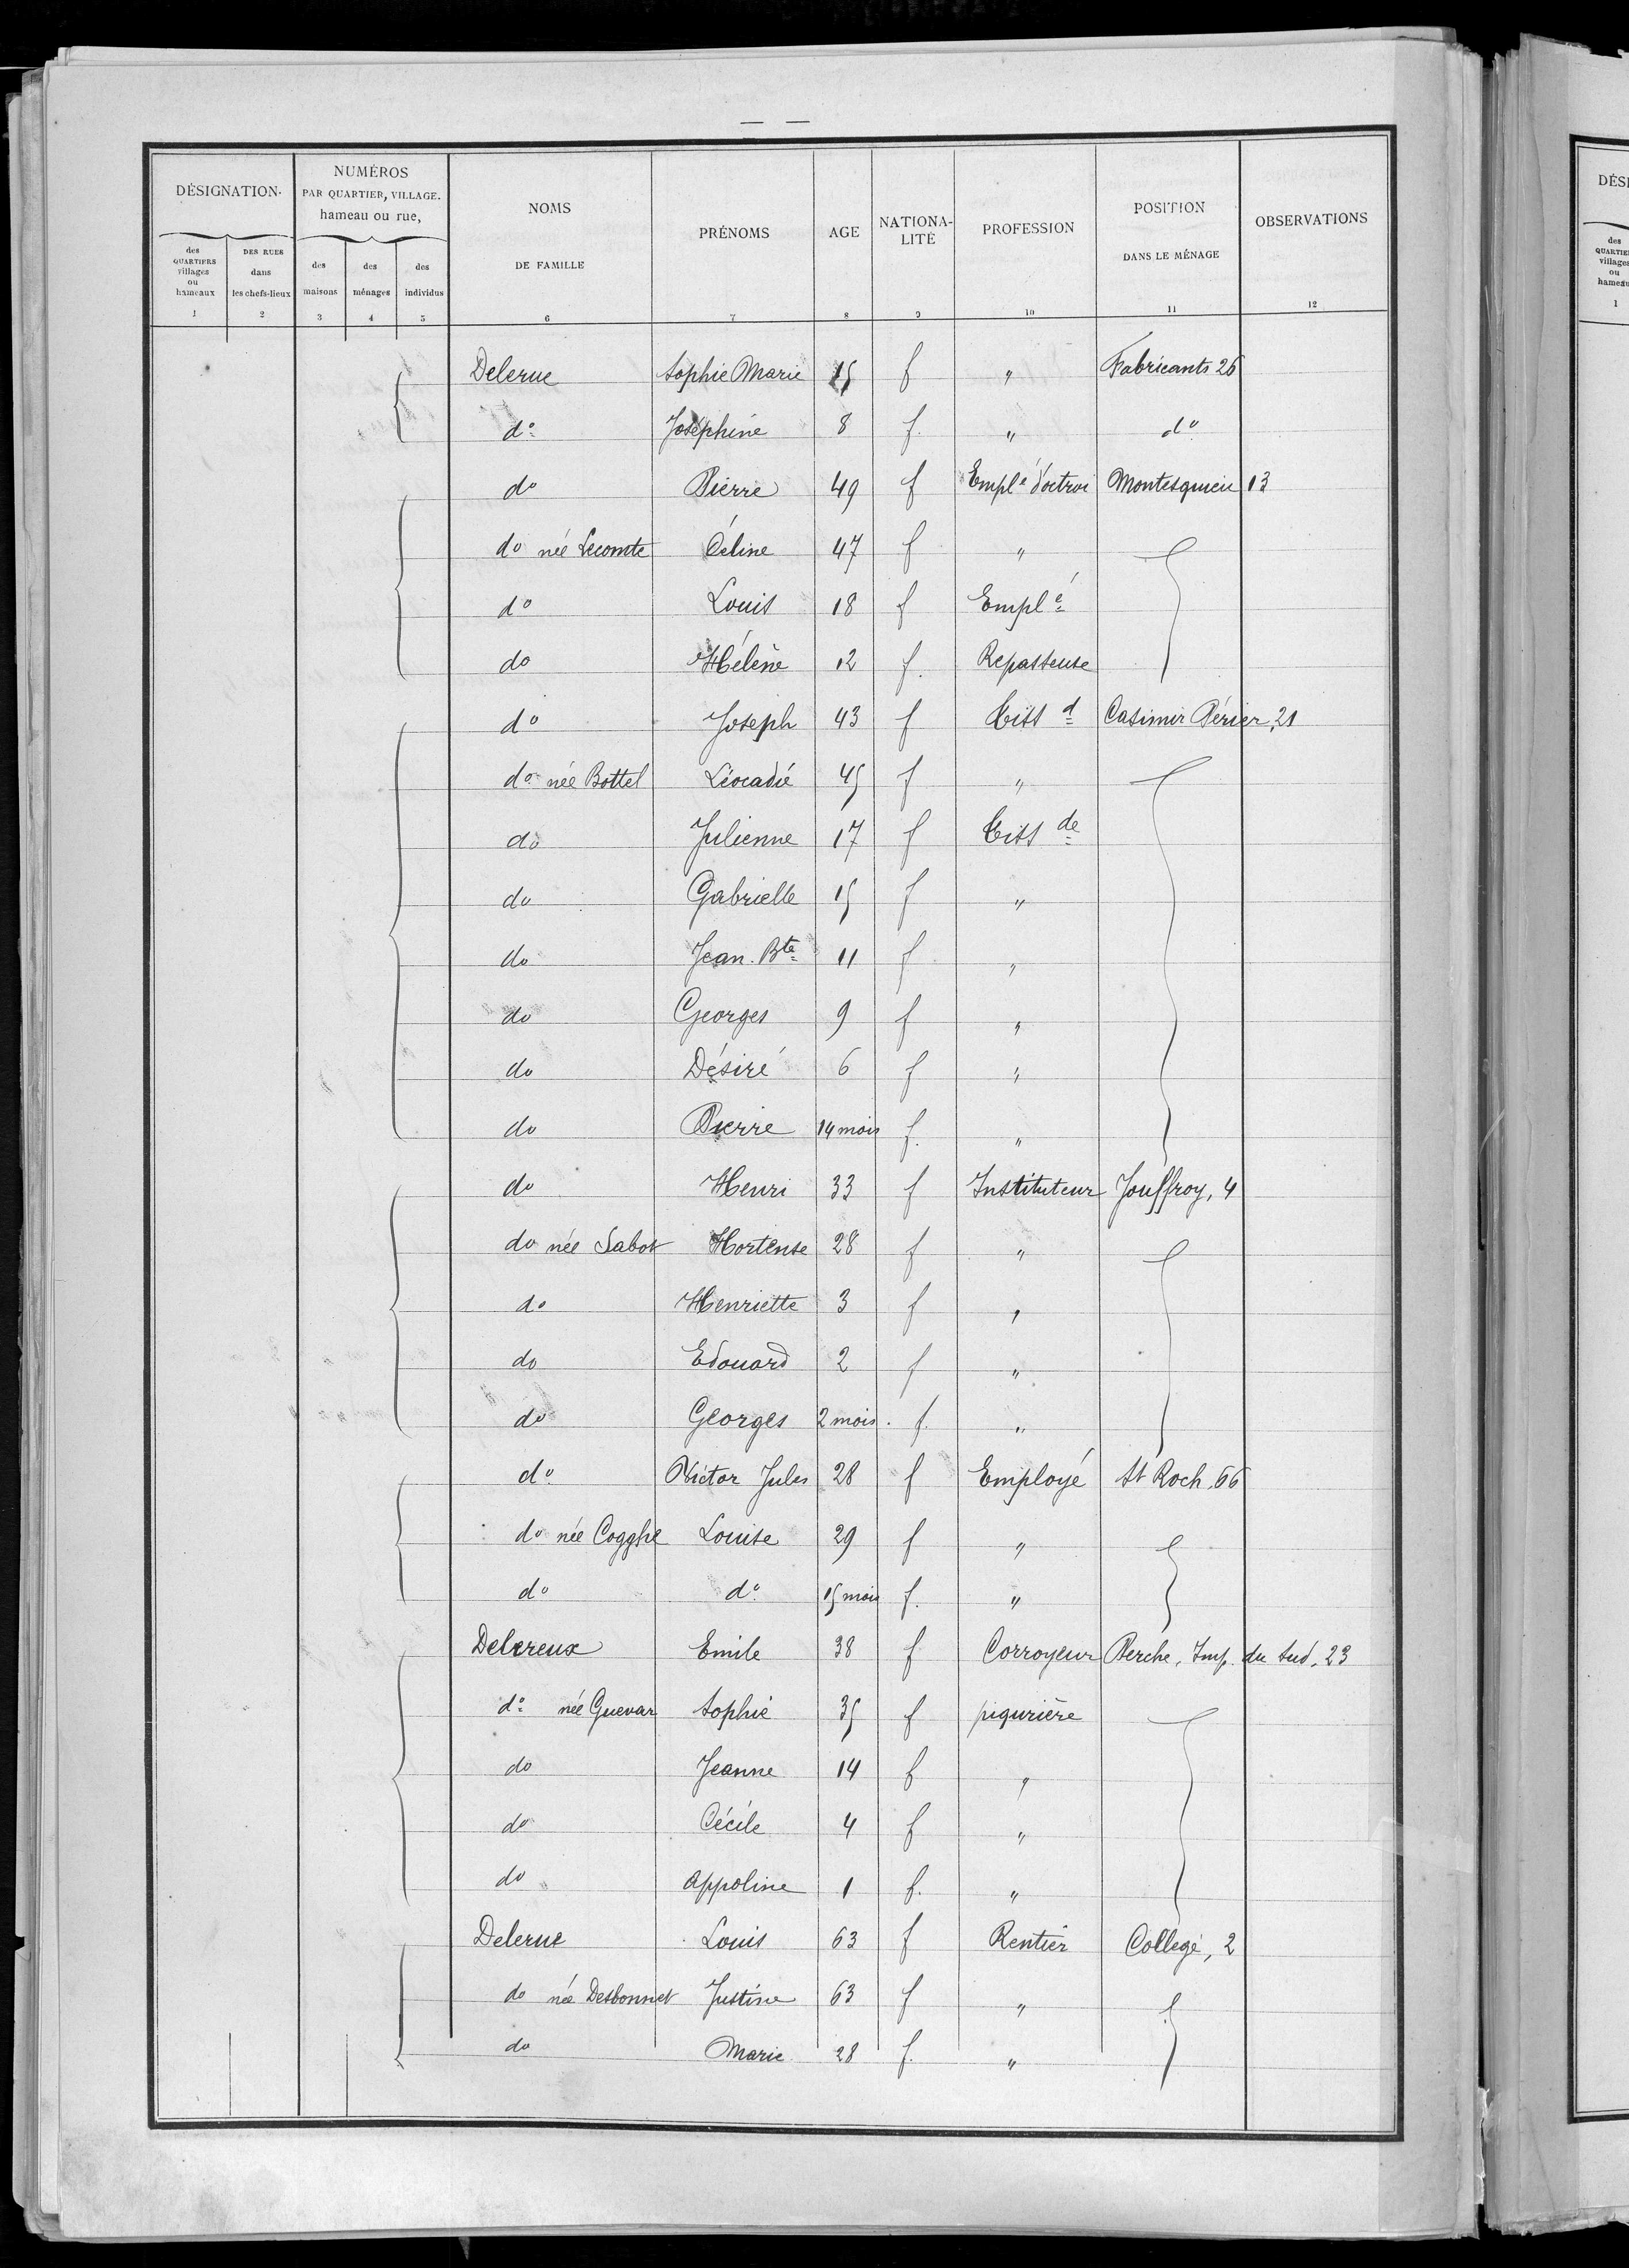 — —
DÉSIGNATION.
NUMÉROS
PAR QUARTIER, VILLAGE.
hameau ou rue,
NOMS
DE FAMILLE
PRÉNOMS
AGE
NATIONA-
LITÉ
PROFESSION
POSITION
DANS LE MÉNAGE
OBSERVATIONS
des QUARTIERS villages ou hameaux
DES RUES dans les chefs-lieux
des maisons
des ménages
des individus
1 2 3 4 5 6 7 8 9 10 11 12
Delerue Sophie Marie 15 f " Fabricants 26
do Joséphine 8 f. " do
do Pierre 49 f Emplé d'octroi Montesquieu 13
do née Lecomte Céline 47 f "
do Louis 18 f Emplé
do Hélène 12 f. Repasseuse
do Joseph 43 f Tissd Casimir Périer, 21
do née Bottel Léocadie 45 f "
do Julienne 17 f Tissde
do Gabrielle 15 f "
do Jean. Bte 11 f "
do Georges 9 f "
do Désiré 6 f "
do Pierre 14 mois f. "
do Henri 33 f Instituteur Jouffroy, 4
do née Sabot Hortense 28 f "
do Henriette 3 f "
do Edouard 2 f "
do Georges 2 mois. f. "
do Victor Jules 28 f Employé St Roch, 66
do née Cogghe Louise 29 f "
do do 15 mois f. "
Delereux Emile 38 f Corroyeur Perche, Imp. du Sud, 23
do née Guevar Sophie 35 f piqurière
do Jeanne 14 f "
do Cécile 4 f "
do Appoline 1 f. "
Delerue Louis 63 f Rentier Collège, 2
do née Desbonnet Justine 63 f "
do Marie 28 f. "
DÉSI
des
QUARTIE
villages
ou
hameau
1